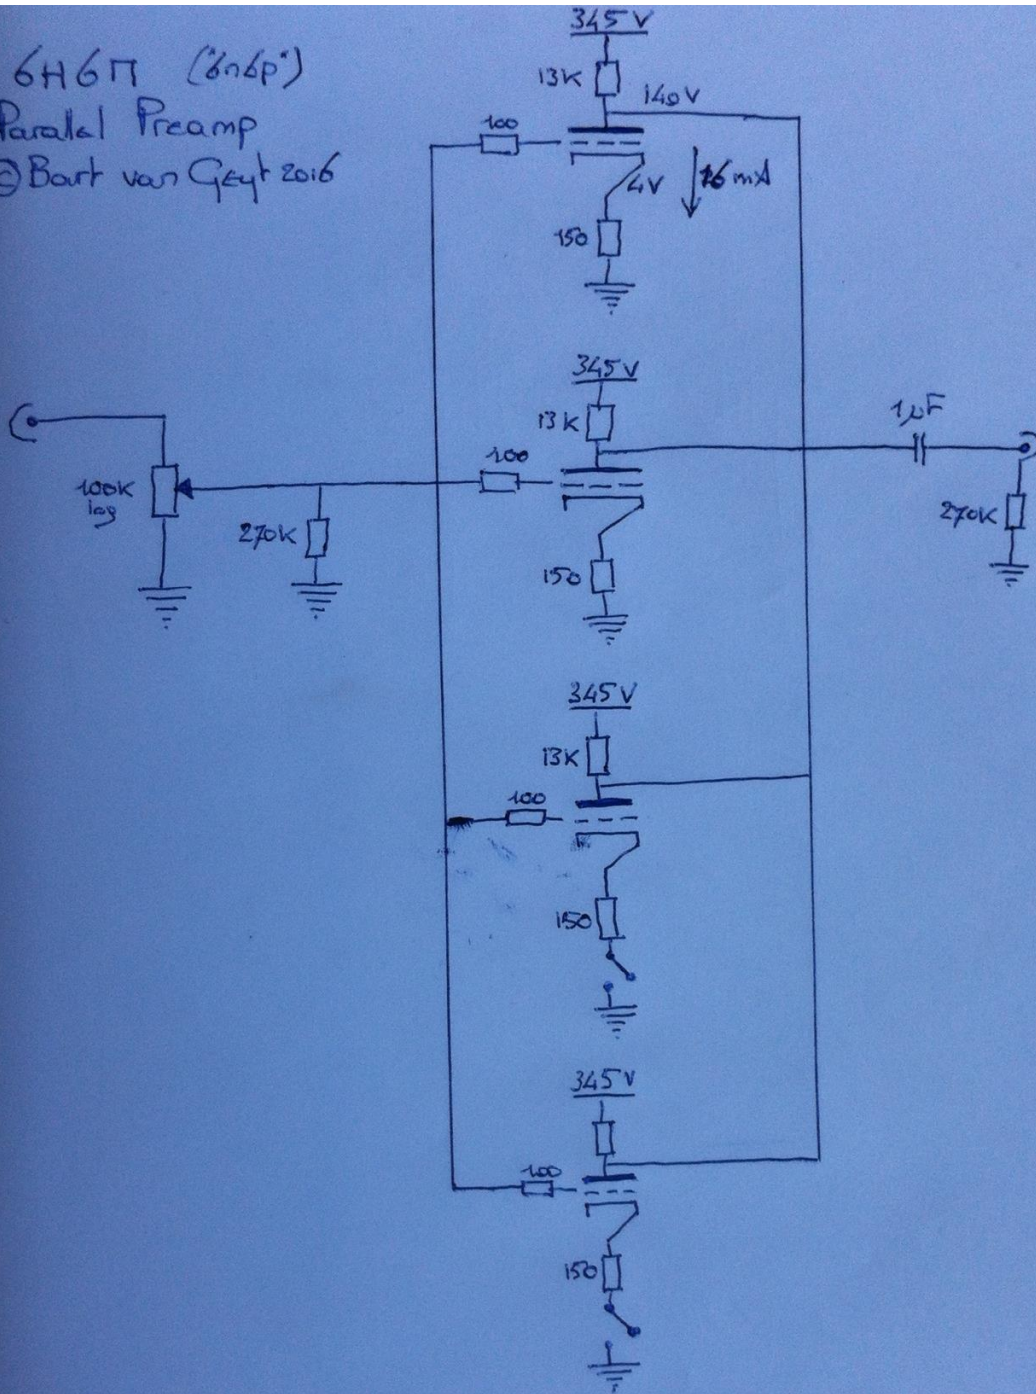 6Н6П ("6n6p")
Paralel Preamp
© Bart van Geyt 2016
345 V
13K
140V
100
4V
16 mA
150
345 V
13K
100
1µF
100K
log
270K
270K
150
345 V
13K
100
150
345V
100
150